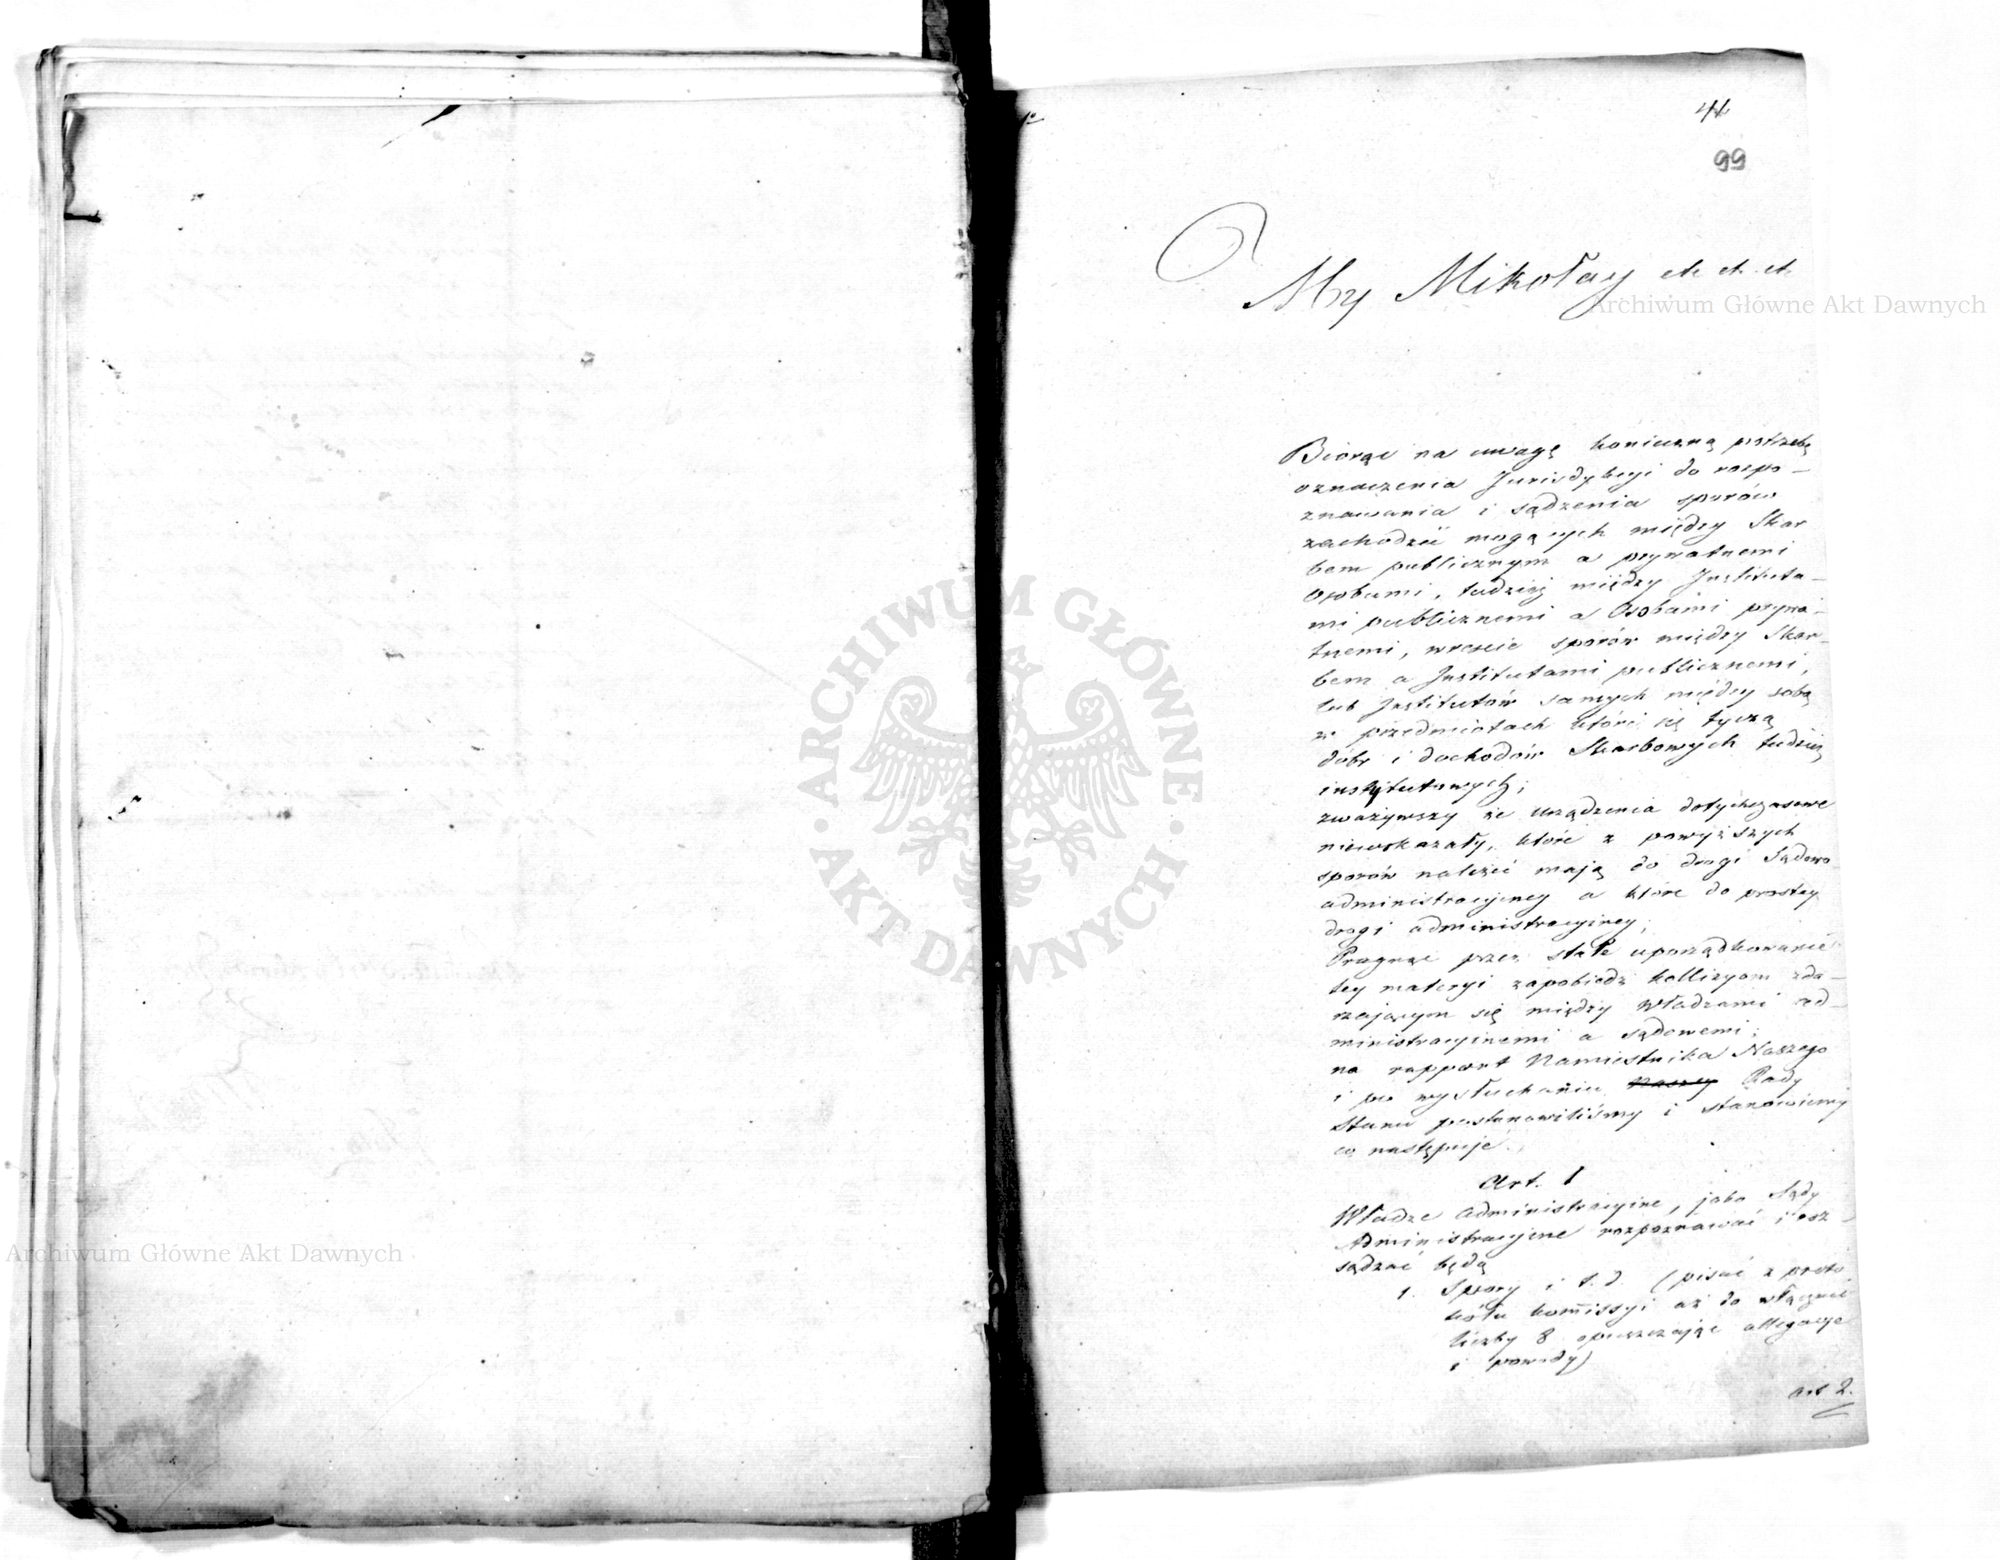 44
99
My Mikołay etc etc etc
Biorąc na uwagę konieczną potrzebę
oznaczenia Jurisdykcyi do rozpo-
znawania i sądzenia sporów
zachodzić mogących między Skar
bem publicznym a prywatnemi
Osobami, tudzież między Instituta-
mi publicznemi a Osobami prywa-
tnemi, wreszcie sporów między Skar-
bem a Institutami publicznemi,
lub Institutów samych między sobą
w przedmiotach które się tyczą
dóbr i dochodów Skarbowych tudzież
instytutowych;
zważywszy że urządzenia dotychczasowe
niewskazały, które z powyższych
sporów należeć mają do drogi Sądowo-
administracyjney a które do prostey
drogi administracyjney;
Pragnąc przez stałe uporządkowanie
tey materyi zapobiedz kollizyom zda-
rzającym się między Władzami ad-
ministracyjnemi a sądowemi;
na rapport Namiestnika Naszego
i po wysłuchaniu Naszey Rady
Stanu postanowiliśmy i stanowiemy
co następuje.
Art. 1
Władze administracyjne, jako Sądy
Administracyjne rozpoznawać i osz-
sądzać będą
1. Spory i t. d. (pisać z proto-
kółu kommissyi aż do włącznie
liczby 8 opuszczając allegacje
i powody)
art 2.
Archiwum Główne Akt Dawnych
Archiwum Główne Akt Dawnych
ARCHIWUM GŁÓWNE
· AKT DAWNYCH ·